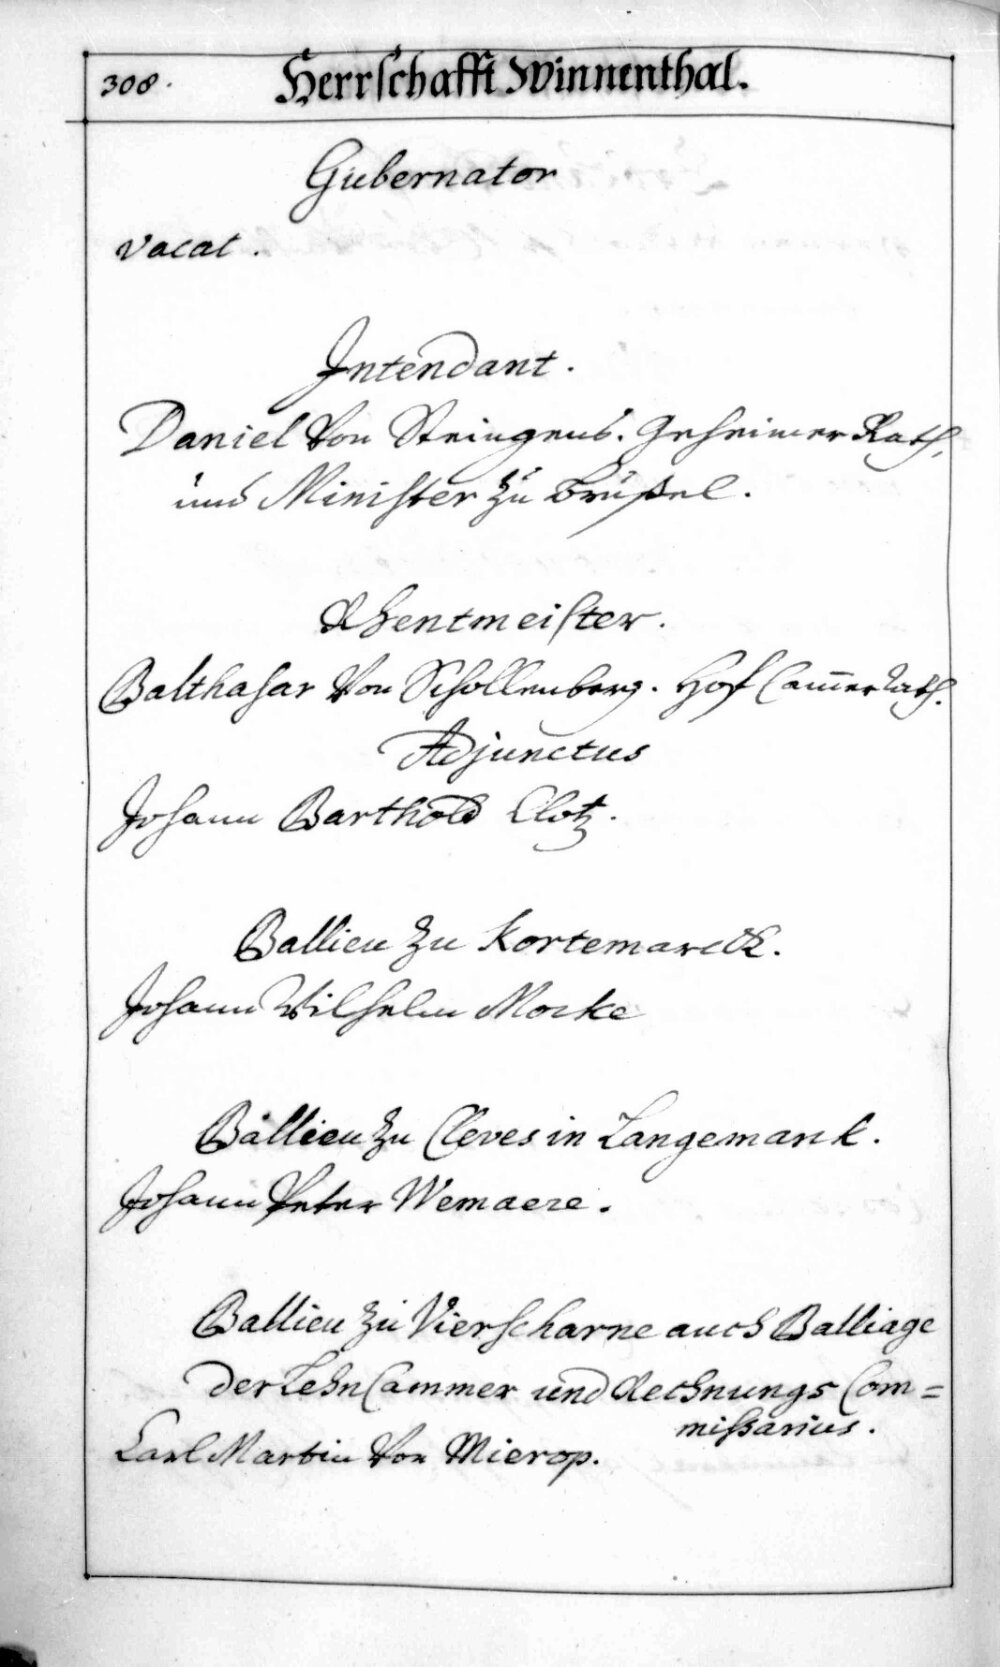 308.
Herrschafft Winnenthal.
Gubernator
vacat.
Intendant.
Daniel Von Steingens. Geheimer Rath,
und Minister zu Brüßel.
Rhentmeister.
Balthasar Von Schollenberg. Hof Cam̄er Rath.
Adjunctus
Johann Barthold Clotz.
Ballieu zu Kortemarck.
Johann Wilhelm Mocke
Ballieu zu Cleves in Langemark.
Johann Peter Wemaere.
Ballieu zu Vierscharne auch Balliage
der Lehn Cammer und Rechnungs Com=
mißarius.
Carl Martin Von Mierop.